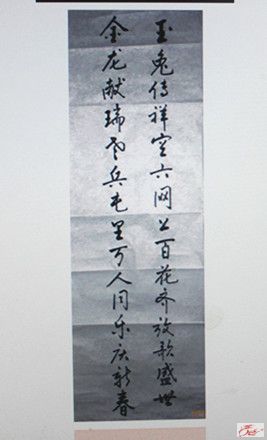 玉兔传祥空六网上百花齐放歌盛世
金龙献瑞 兵屯里万人同乐庆新春